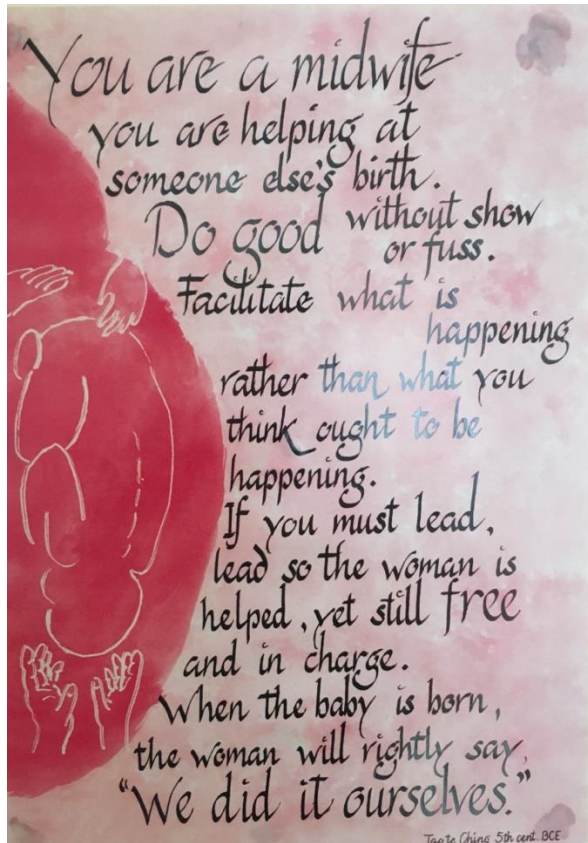 You are a midwife
you are helping at
someone else's birth.
Do good without show
or fuss.
Facilitate what is
happening
rather than what you
think ought to be
happening.
If you must lead,
lead so the woman is
helped, yet still free
and in charge.
When the baby is born,
the woman will rightly say,
"We did it ourselves."
Tao te Ching 5th cent. BCE